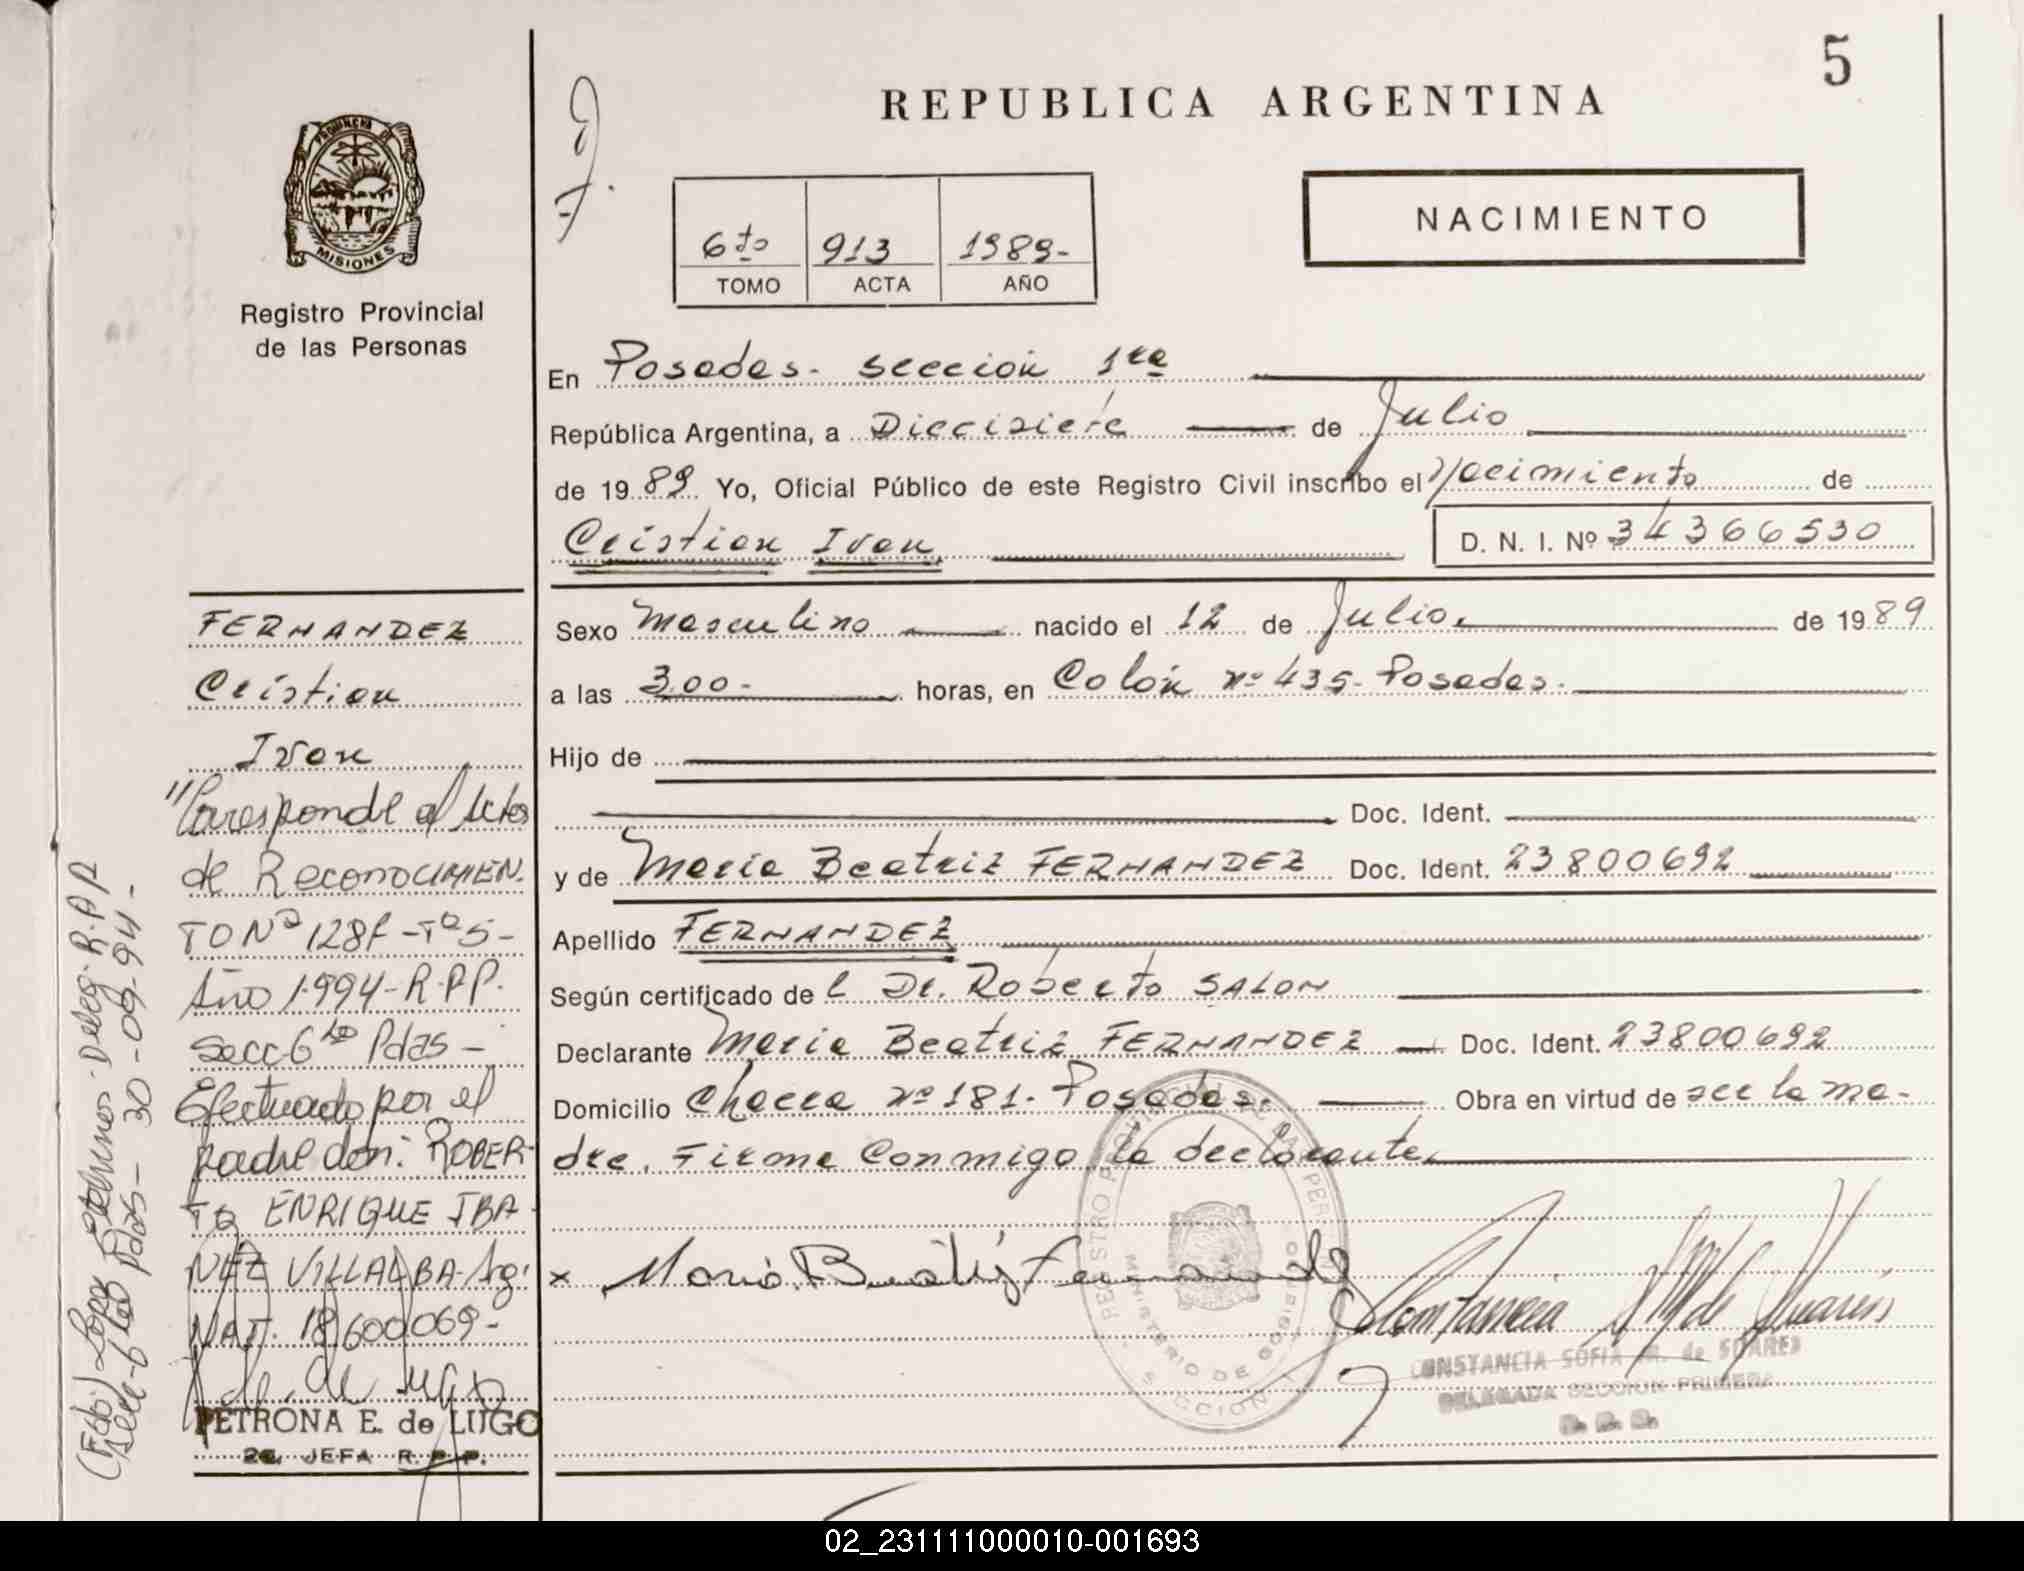 5
REPUBLICA ARGENTINA
PROVINCIA DE
MISIONES
Registro Provincial
de las Personas
6to 913 1989-
TOMO ACTA AÑO
NACIMIENTO
En Posadas - sección 1ra
República Argentina, a Diecisiete de Julio
de 1989 Yo, Oficial Público de este Registro Civil inscribo el Nacimiento de
Cristian Ivan D. N. I. Nº 34366530
Sexo Masculino nacido el 12 de Julio de 1989
a las 3,00- horas, en Colón nº 435- Posadas.
Hijo de
Doc. Ident.
y de Maria Beatriz FERNANDEZ Doc. Ident. 23800692
Apellido FERNANDEZ
Según certificado del Dr. Roberto SALON
Declarante Maria Beatriz FERNANDEZ Doc. Ident. 23800692
Domicilio Chacra nº 181- Posadas. Obra en virtud de ser la ma-
dre. Firma Conmigo la declarante.
x Maria Beatriz Fernandez
CONSTANCIA SOFIA M. de SUARES
DELEGADA SECCION PRIMERA
REGISTRO PROVINCIAL DE LAS PERSONAS
MINISTERIO DE GOBIERNO
SECCION
FERNANDEZ
Cristian
Ivan
"Corresponde al Acta
de RECONOCIMIEN.
TO Nº 128f - Tº 5 -
Año 1994 - R.P.P.
Secc 6ta Pdas -
Efectuado por el
padre don: ROBER-
TO ENRIQUE IBA-
ÑEZ VILLALBA - Arg.
MAT. 18.600.069-
PETRONA E. de LUGO
2a. JEFA R. P. P.
(Fdo) Deleg. R.P.P
Secc- 6ta Pdas - 30-09-94-
02_231111000010-001693